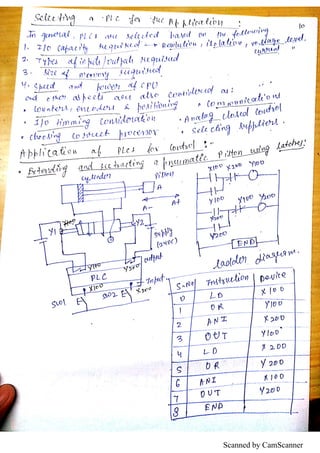 Selecting a PLC for the Application :
In general, PLCs are selected based on the following
1. I/O capacity required → Resolution, isolation, voltage level.
current "
2. Types of input/output required
3. Size of memory required
4. Speed and power of CPU
and other aspects are also considered as :
• counters, encoders & positioning • communications
• I/O timing consideration • Analog closed control
• checking correct processor • selecting suppliers.
Application of PLCs for control :-
• Extending and retracting a pneumatic piston using latches:
cylinder piston
A
A- A+
Y1 Y2
supply
(24VC)
Y100 Y200 output
PLC
X100 X200 Input
S101 S102
Y100 X200 Y100
Y100
Y200 X100 Y200
Y200
END
ladder diagram.
S.No Instruction Device
0 LD X100
1 OR Y100
2 ANI X200
3 OUT Y100
4 LD X200
5 OR Y200
6 ANI X100
7 OUT Y200
8 END
Scanned by CamScanner